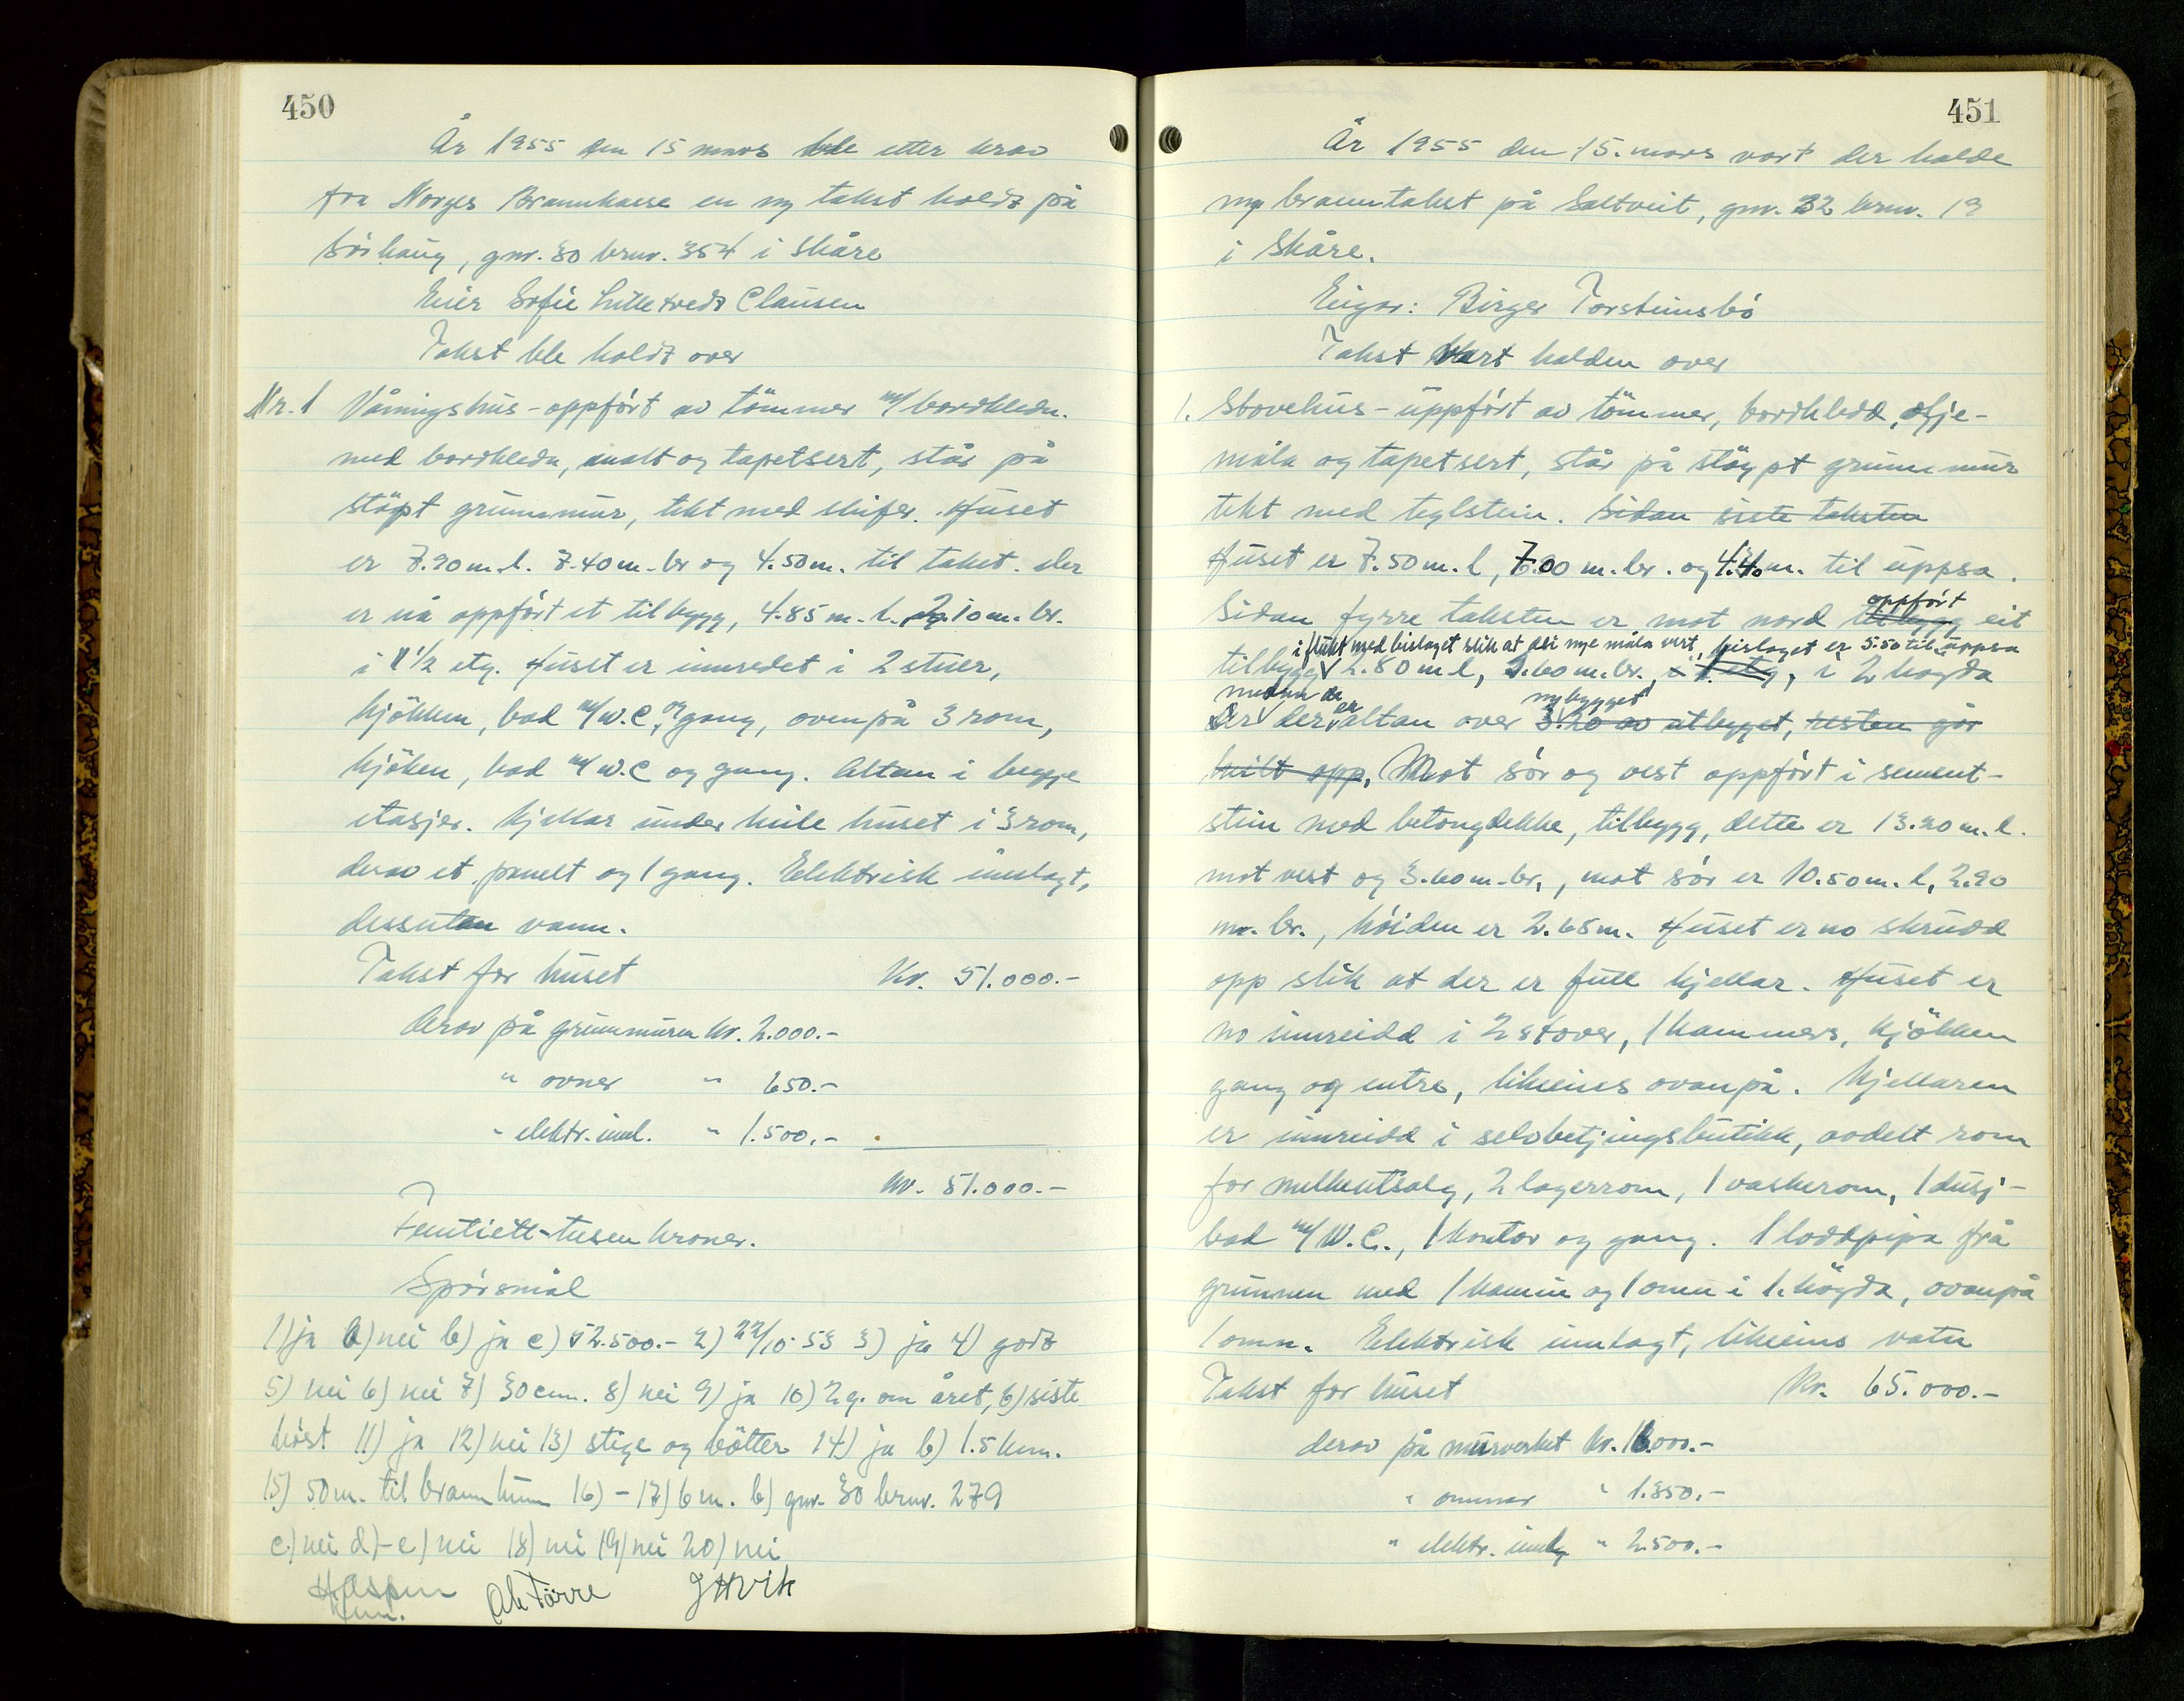 450
År 1955 den 15 mars ble etter krav
fra Norges Brannkasse en ny takst holdt på
Sørhaug, gnr. 30 brnr. 354 i Skåre
Eier Sofie Clausen
Takst ble holdt over
Nr. 1 Våningshus - oppført av tömmer m/ bordkledn.
med bordkledn, malt og tapetsert, står på
stöpt grunnmur, tekt med skifer. Huset
er 7.90 m. l. 7.40 m. br og 4.50 m. til takst. Der
er nå oppført et tilbygg, 4.85 m. l. 2.10 m. br.
i 1 1/2 etg. Huset er innredet i 2 stuer,
kjökken, bad m/ W.C, og gang, ovenpå 3 rom,
kjöken, bad m/ W.C og gang. Altan i begge
etasjer. Kjellar under heile huset i 3 rom,
derav et panelt og 1 gang. Elektrisk innlagt,
dessuten vann.
Takst for huset Kr. 51.000.-
derav på grunnmuren kr. 2.000.-
" ovner " 650.-
" elektr. innl. " 1.500.-
kr. 51.000.-
Femtiett-tusen kroner.
Spørsmål
1) ja a) nei b) ja c) 52.500.- 2) 22/10-53 3) ja 4) godt
5) nei 6) nei 7) 30 cm. 8) nei 9) ja 10) 2 g. om året, b) siste
høst 11) ja 12) nei 13) stige og bötter 14) ja b) 1.5 km.
15) 50 m. til brannkum 16) - 17) 6 m. b) gnr. 30 brnr. 279
c) nei d) - e) nei 18) nei 19) nei 20) nei
Ak Förre JHVik
451
År 1955 den 15. mars vart der halde
ny branntakst på Saltveit, gnr. 32 brnr. 19
i Skåre.
Eigar: Birger Torsteinsbö
Takst vart halden over
1. Stovehus - uppfört av tömmer, bordkledd, olje-
måla og tapetsert, står på stöypt grunnmur
tekt med teglstein. Sidan siste taksten
Huset er 7.50 m. l, 7.00 m. br. og 4.40 m. til uppsa.
Sidan fyrre taksten er mot nord tilbygg oppført eit
i flukt med bislaget slik at dei nye måla vert, bislaget er 5.50 til uppsa
tilbygg 2.80 m l, 3.60 m. br., i 1 etg, i 2 högda
medan der er nybygget
Er der altan over 3.20 av utbygget, resten går
kvilt opp, Mot sör og vest oppført i sement-
stein med betongdekke, tilbygg, dette er 13.20 m. l.
mot vest og 3.60 m. br., mot sör er 10.50 m. l, 2.90
m. br., höiden er 2.65 m. Huset er no skrudd
opp slik at der er full kjellar. Huset er
no innreidd i 2 stover, 1 kammers, kjökken
gang og entre, likeeins ovanpå. Kjellaren
er innreidd i selvbetjingsbutikk, avdelt rom
for melkeutsalg, 2 lagerrom, 1 vaskerom, 1 dusj-
bad m/ W.C., 1 kontor og gang. 1 loddpipa frå
grunnen med 1 kamin og 1 omn i 1. högda, ovanpå
1 omn. Elektrisk innlagt, likeeins vatn
Takst for huset Kr. 65.000.-
derav på murverket kr. 16.000.-
" omnar " 1.850.-
" elektr. innlg " 2.500.-